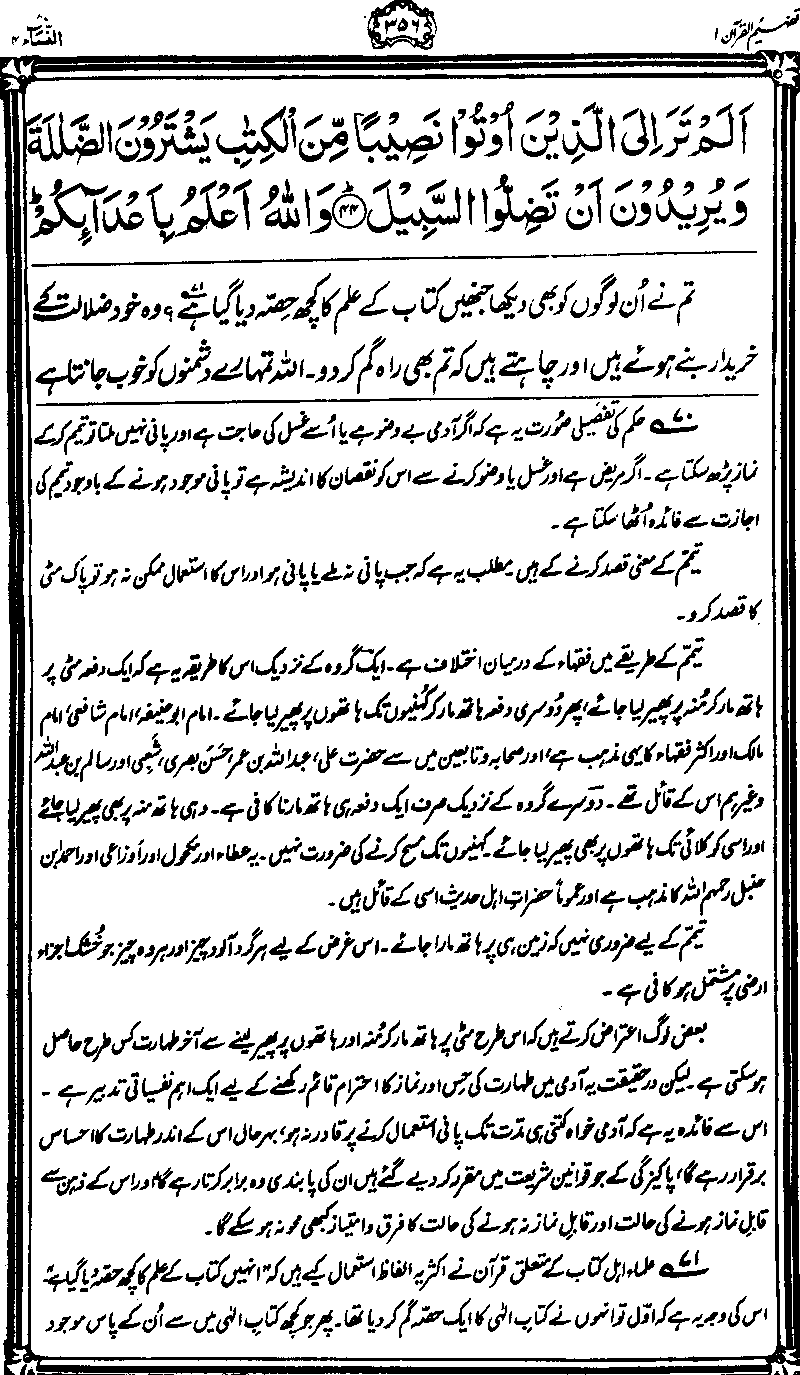 تفہیم القرآن ۱
۳۵۶
النساء ۴
اَلَمْ تَرَ اِلَى الَّذِيْنَ اُوْتُوْا نَصِيْبًا مِّنَ الْكِتٰبِ يَشْتَرُوْنَ الضَّلٰلَةَ
وَيُرِيْدُوْنَ اَنْ تَضِلُّوا السَّبِيْلَ ﴿۴۴﴾ وَاللّٰهُ اَعْلَمُ بِاَعْدَآئِكُمْ ؕ
تم نے اُن لوگوں کو بھی دیکھا جنھیں کتاب کے علم کا کچھ حِصّہ دیا گیا ہے۷۱؟ وہ خود ضلالت کے
خریدار بنے ہوئے ہیں اور چاہتے ہیں کہ تم بھی راہ گم کر دو۔ اللہ تمہارے دشمنوں کو خوب جانتا ہے
۷۰؎ حکم کی تفصیلی صُورت یہ ہے کہ اگر آدمی بے وضو ہے یا اُسے غسل کی حاجت ہے اور پانی نہیں ملتا تو تیمم کرکے
نماز پڑھ سکتا ہے۔ اگر مریض ہے اور غسل یا وضو کرنے سے اس کو نقصان کا اندیشہ ہے تو پانی موجود ہونے کے باوجود تیمم کی
اجازت سے فائدہ اُٹھا سکتا ہے۔
تیمّم کے معنی قصد کرنے کے ہیں۔ مطلب یہ ہے کہ جب پانی نہ ملے یا پانی ہو اور اس کا استعمال ممکن نہ ہو تو پاک مٹی
کا قصد کرو۔
تیمّم کے طریقے میں فقہاء کے درمیان اختلاف ہے۔ ایک گروہ کے نزدیک اس کا طریقہ یہ ہے کہ ایک دفعہ مٹی پر
ہاتھ مار کر مُنہ پر پھیر لیا جائے، پھر دُوسری دفعہ ہاتھ مار کر کُہنیوں تک ہاتھوں پر پھیر لیا جائے۔ امام ابوحنیفہؒ، امام شافعیؒ، امام
مالک اور اکثر فقہاء کا یہی مذہب ہے، اور صحابہ و تابعین میں سے حضرت علی، عبداللہ بن عمر، حَسَن بصری، شَعبِی اور سالم بن عبداللہ
وغیرہم اس کے قائل تھے۔ دوسرے گروہ کے نزدیک صرف ایک دفعہ ہی ہاتھ مارنا کافی ہے۔ وہی ہاتھ منہ پر بھی پھیر لیا جائے
اور اسی کو کلائی تک ہاتھوں پر بھی پھیر لیا جائے۔ کہنیوں تک مسح کرنے کی ضرورت نہیں۔ یہ عطاء اور مکحول اور اوزاعی اور احمد ابن
حنبل رحمہم اللہ کا مذہب ہے اور عموماً حضراتِ اہلِ حدیث اسی کے قائل ہیں۔
تیمّم کے لیے ضروری نہیں کہ زمین ہی پر ہاتھ مارا جائے۔ اس غرض کے لیے ہر گرد آلود چیز اور ہر وہ چیز جو خُشک اجزاء
ارضی پر مشتمل ہو کافی ہے۔
بعض لوگ اعتراض کرتے ہیں کہ اس طرح مٹی پر ہاتھ مار کر مُنہ اور ہاتھوں پر پھیر لینے سے آخر طہارت کس طرح حاصل
ہو سکتی ہے۔ لیکن در حقیقت یہ آدمی میں طہارت کی حِس اور نماز کا احترام قائم رکھنے کے لیے ایک اہم نفسیاتی تدبیر ہے۔
اس سے فائدہ یہ ہے کہ آدمی خواہ کتنی ہی مدّت تک پانی استعمال کرنے پر قادر نہ ہو، بہرحال اس کے اندر طہارت کا احساس
برقرار رہے گا، پاکیزگی کے جو قوانین شریعت میں مقرر کر دیے گئے ہیں ان کی پابندی وہ برابر کرتا رہے گا، اور اس کے ذہن سے
قابلِ نماز ہونے کی حالت اور قابلِ نماز نہ ہونے کی حالت کا فرق و امتیاز کبھی محو نہ ہو سکے گا۔
۷۱؎ علماء اہلِ کتاب کے متعلق قرآن نے اکثر یہ الفاظ استعمال کیے ہیں کہ "انہیں کتاب کے علم کا کچھ حصّہ دیا گیا ہے"۔
اس کی وجہ یہ ہے کہ اوّل تو انہوں نے کتابِ الٰہی کا ایک حصّہ گم کر دیا تھا۔ پھر جو کچھ کتابِ الٰہی میں سے اُن کے پاس موجود